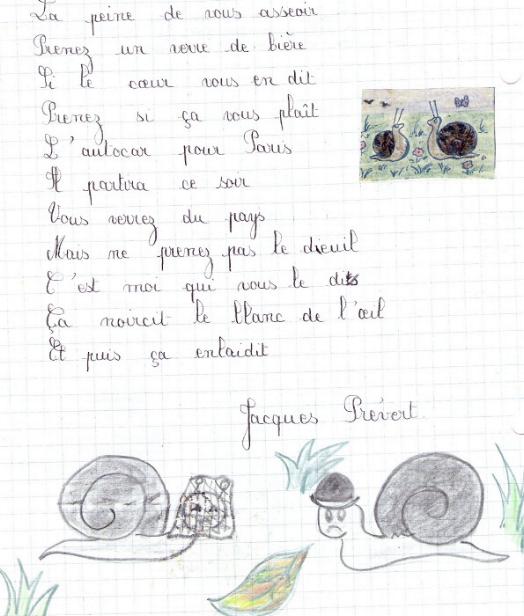 La peine de vous asseoir
Prenez un verre de bière
Si le cœur vous en dit
Prenez si ça vous plaît
L'autocar pour Paris
Il partira ce soir
Vous verrez du pays
Mais ne prenez pas le dieuil
C'est moi qui vous le dis
Ça noircit le blanc de l'œil
Et puis ça enlaidit
Jacques Prévert